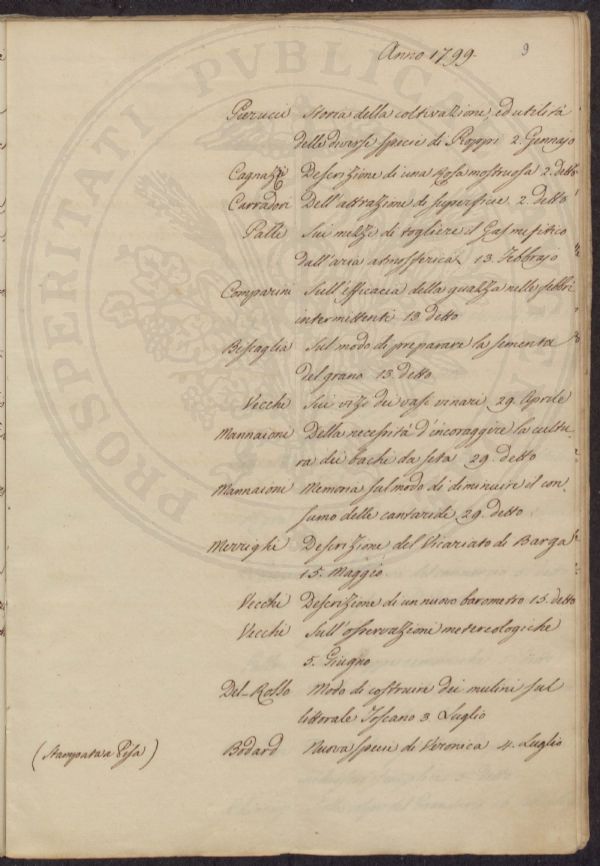 Anno 1799. 9
Pierucci Storia della coltivazione, ed utilità
delle diverse specie di Pioppi 2. Gennajo
Cagnazzi Descrizione di una Rosa mostruosa 2. detto
Carradori Dell'attrazione di superficie 2. detto
Palli Sui mezzi di togliere il Gas mefitico
dall'aria atmosferica 13. Febbrajo
Comparini Sull'efficacia della quassia nelle febbri
intermittenti 13 detto
Biscaglia Sul modo di preparare la sementa
del grano 13. detto
Vecchi Sui vizi dei vasi vinari 29. Aprile
Mannaioni Della necessità d'incoraggire la cultu-
ra dei bachi da seta 29. detto
Mannaioni Memoria sul modo di diminuire il con-
sumo delle cantaridi 29. detto
Merrighi Descrizione del Vicariato di Barga
15. Maggio
Vecchi Descrizione di un nuovo barometro 15. detto
Vecchi Sull'osservazioni metereologiche
5. Giugno
Del-Rosso Modo di costruire dei mulini sul
littorale Toscano 3 Luglio
(Stampata a Pisa) Bodard Nuova specie di Veronica 4. Luglio
PROSPERITATI PVBLICAE